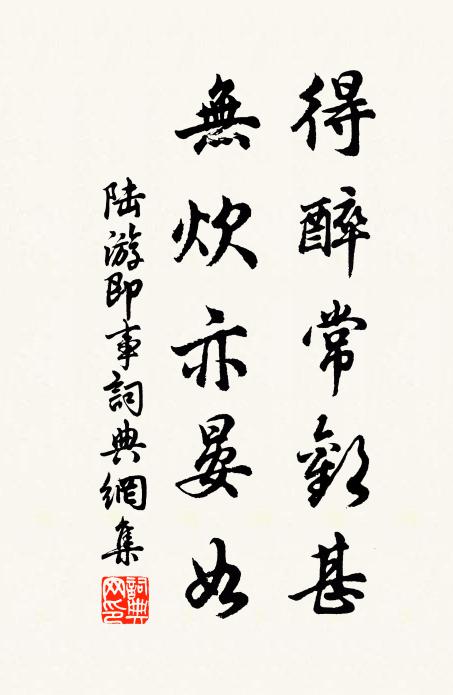 得醉常歡甚
無炊亦晏如
陸游即事詞典網集
詞典网印